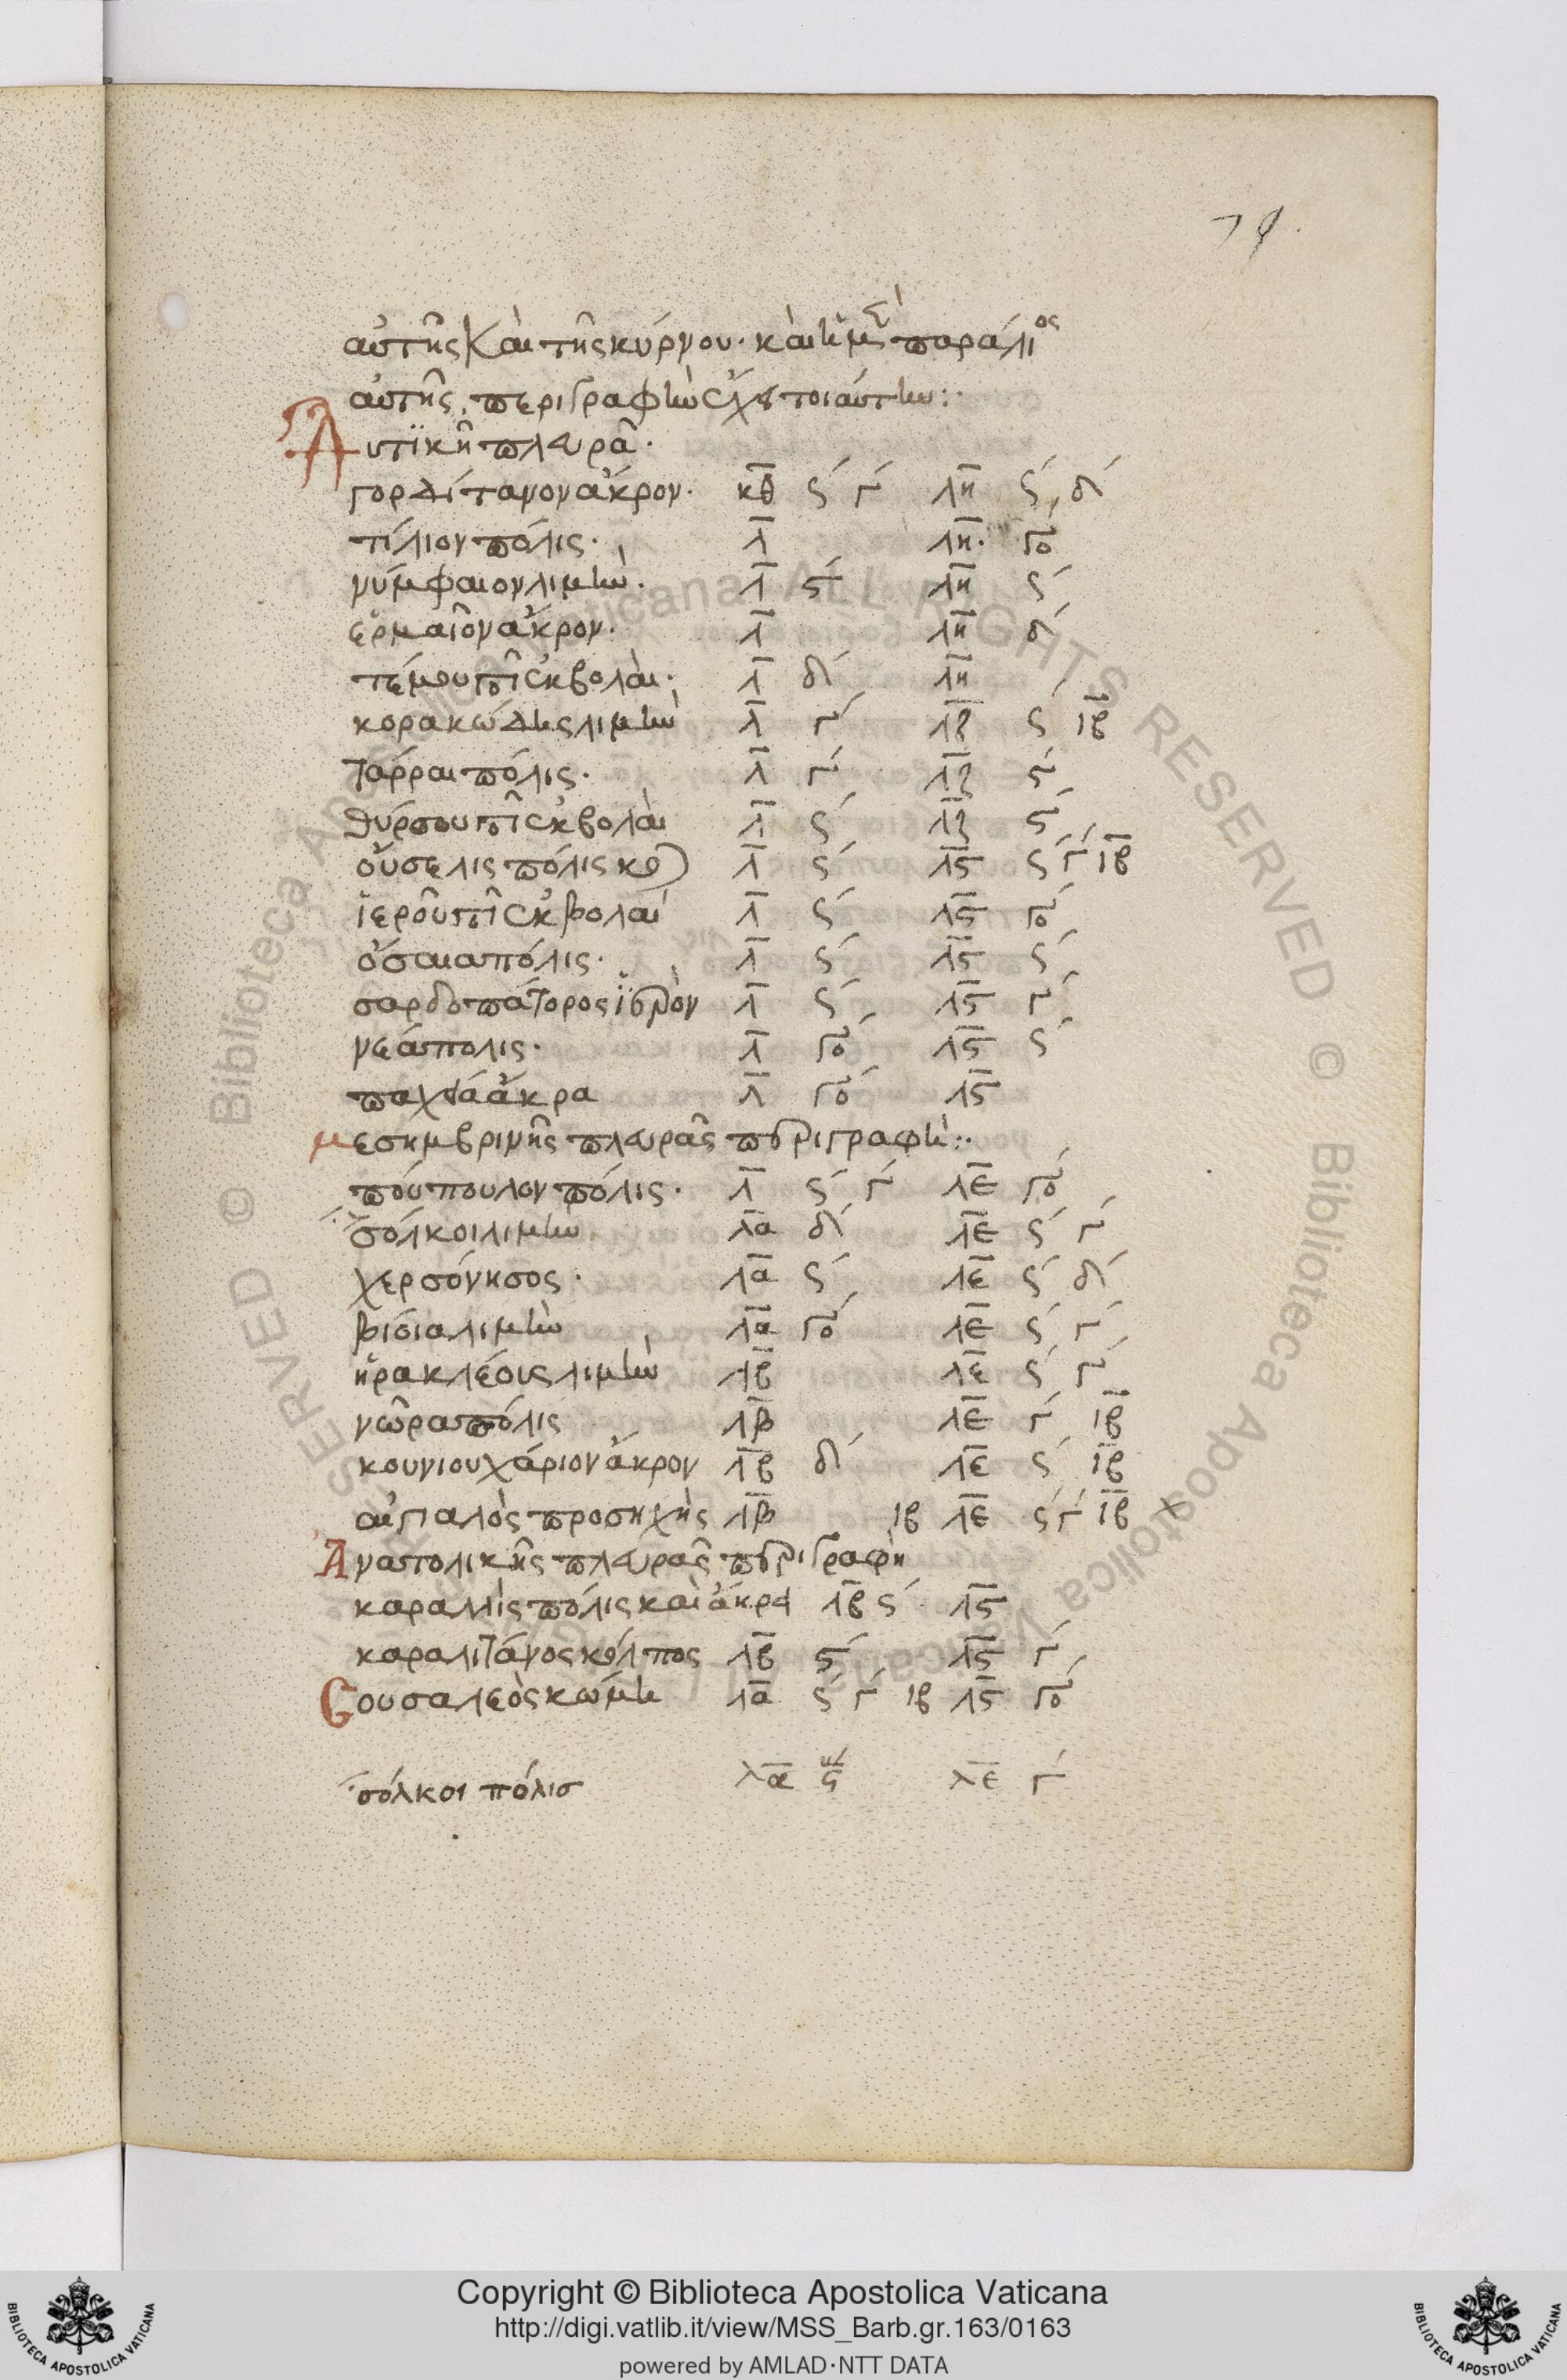 79.
αὐτῆς καὶ τῆς κύρνου· καὶ ἡ μὲν παράλιος
αὐτῆς περιγραφὴν ἔχει τοιαύτην:·
Δυτϊκὴ πλευρᾶ·
γορδίτανον ἄκρον· κθ ϛ γ λη ϛ δ
τίλιον πόλις· λ λη· γο
νύμφαιον λιμὴν· λ ϛ λη ϛ
ἑρμαῖον ἄκρον· λ λη δ
τέμου πο ἐκβολαὶ· λ δ λη
κορακώδης λιμὴν λ γ λζ ϛ ιβ
τάρραι πόλις· λ γ λζ ϛ
θύρσου πο ἐκβολαὶ λ ϛ λζ ϛ
οὔσελις πόλις κο λ ϛ λϛ ϛ γ ιβ
ἱεροῦ πο ἐκβολαὶ λ ϛ λϛ γο
ὀσαια πόλις· λ ϛ λϛ ϛ
σαρδοπάτορος ἱερὸν λ ϛ λϛ γ
νεάπολις· λ γο λϛ ϛ
παχεῖα ἄκρα λ γο λϛ
μεσημβρινῆς πλευρᾶς περιγραφὴ:·
πούπουλον πόλις· λ ϛ γ λε γο
σόλκοι λιμὴν λα δ λε ϛ γ
χερσόνησος· λα ϛ λε ϛ δ
βίσια λιμὴν λα γο λε ϛ γ
ἡρακλέους λιμὴν λβ λε ϛ γ
νῶρα πόλις λβ λε γ ιβ
κουνιουχάριον ἄκρον λβ δ λε ϛ ιβ
αἰγιαλὸς προσηχὴς λβ ιβ λε ϛ γ ιβ
Ἀνατολικῆς πλευρᾶς περιγραφὴ
καραλλὶς πόλις καὶ ἄκρα λβ ϛ λϛ
καραλιτάνος κόλπος λβ ϛ λϛ γ
Σουσαλεὸς κώμη λα ϛ γ ιβ λϛ γο
σόλκοι πόλισ λα ϛ λε γ
© Biblioteca Apostolica Vaticana ALL RIGHTS RESERVED © Biblioteca Apostolica Vaticana ALL RIGHTS RESERVED
Copyright © Biblioteca Apostolica Vaticana
http://digi.vatlib.it/view/MSS_Barb.gr.163/0163
powered by AMLAD·NTT DATA
BIBLIOTECA APOSTOLICA VATICANA
BIBLIOTECA APOSTOLICA VATICANA